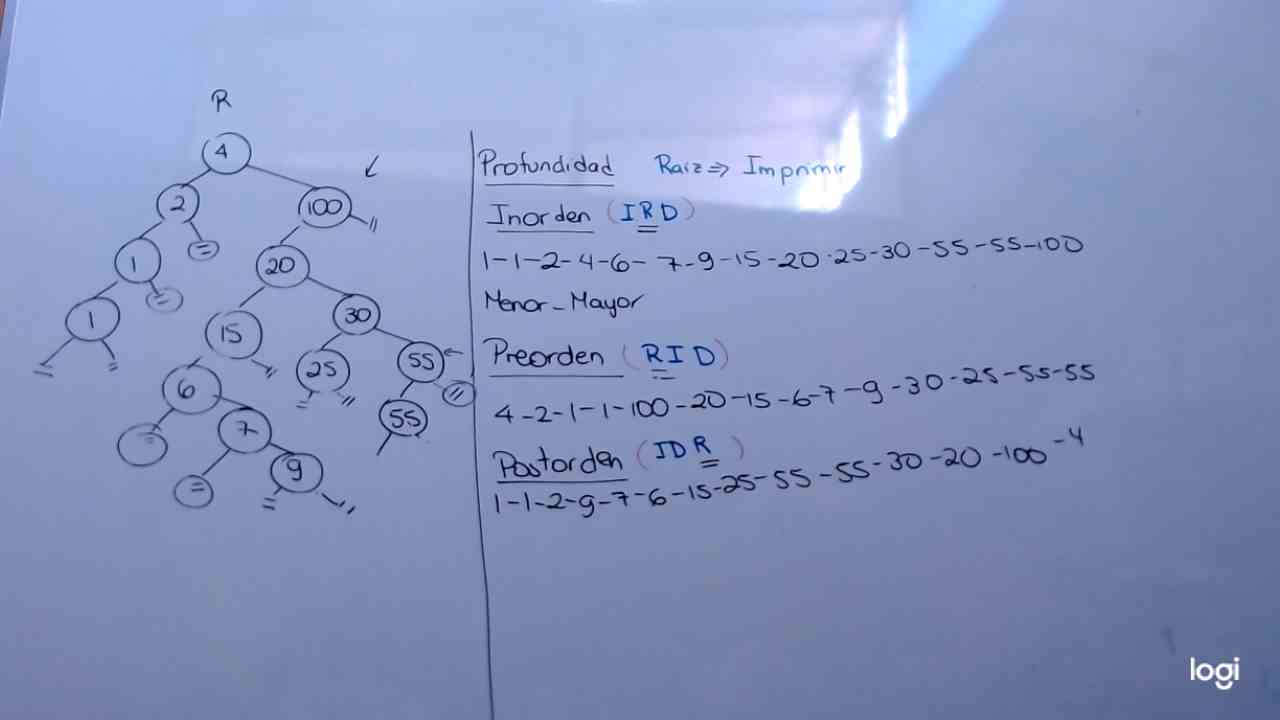 R
4
2
100
1
20
1
15
30
6
25
55
7
55
9
Profundidad Raíz ⇒ Imprimir
Inorden (IRD)
1-1-2-4-6-7-9-15-20-25-30-55-55-100
Menor-Mayor
Preorden (RID)
4-2-1-1-100-20-15-6-7-9-30-25-55-55
Postorden (IDR)
1-1-2-9-7-6-15-25-55-55-30-20-100-4
logi